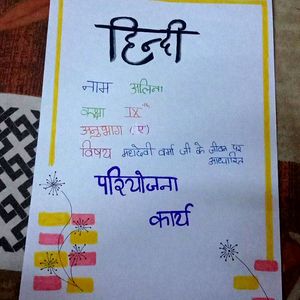 हिन्दी
नाम अलिना
कक्षा IX th
अनुभाग (ए)
विषय महादेवी वर्मा जी के जीवन पर
आधारित
परियोजना
कार्य